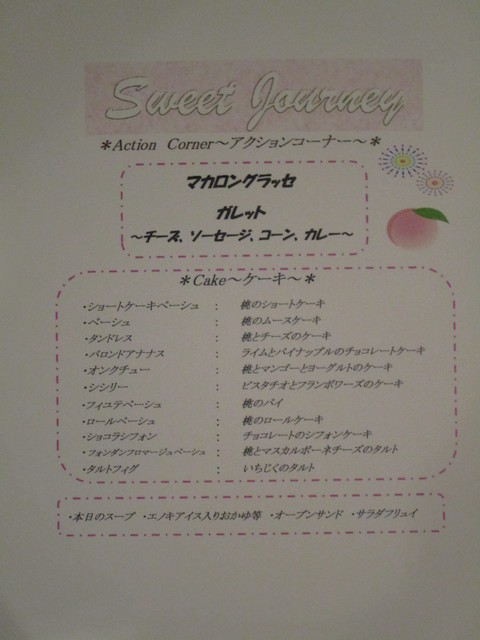 Sweet Journey
＊Action Corner～アクションコーナー～＊
マカロングラッセ
ガレット
～チーズ、ソーセージ、コーン、カレー～
＊Cake～ケーキ～＊
・ショートケーキペーシュ ： 桃のショートケーキ
・ペーシュ ： 桃のムースケーキ
・タンドレス ： 桃とチーズのケーキ
・バロンドアナナス ： ライムとパイナップルのチョコレートケーキ
・オンクチュー ： 桃とマンゴーとヨーグルトのケーキ
・シシリー ： ピスタチオとフランボワーズのケーキ
・フィユテペーシュ ： 桃のパイ
・ロールペーシュ ： 桃のロールケーキ
・ショコラシフォン ： チョコレートのシフォンケーキ
・フォンダンフロマージュペーシュ ： 桃とマスカルポーネチーズのタルト
・タルトフィグ ： いちじくのタルト
・本日のスープ ・エノキアイス入りおかゆ等 ・オープンサンド ・サラダフリュイ